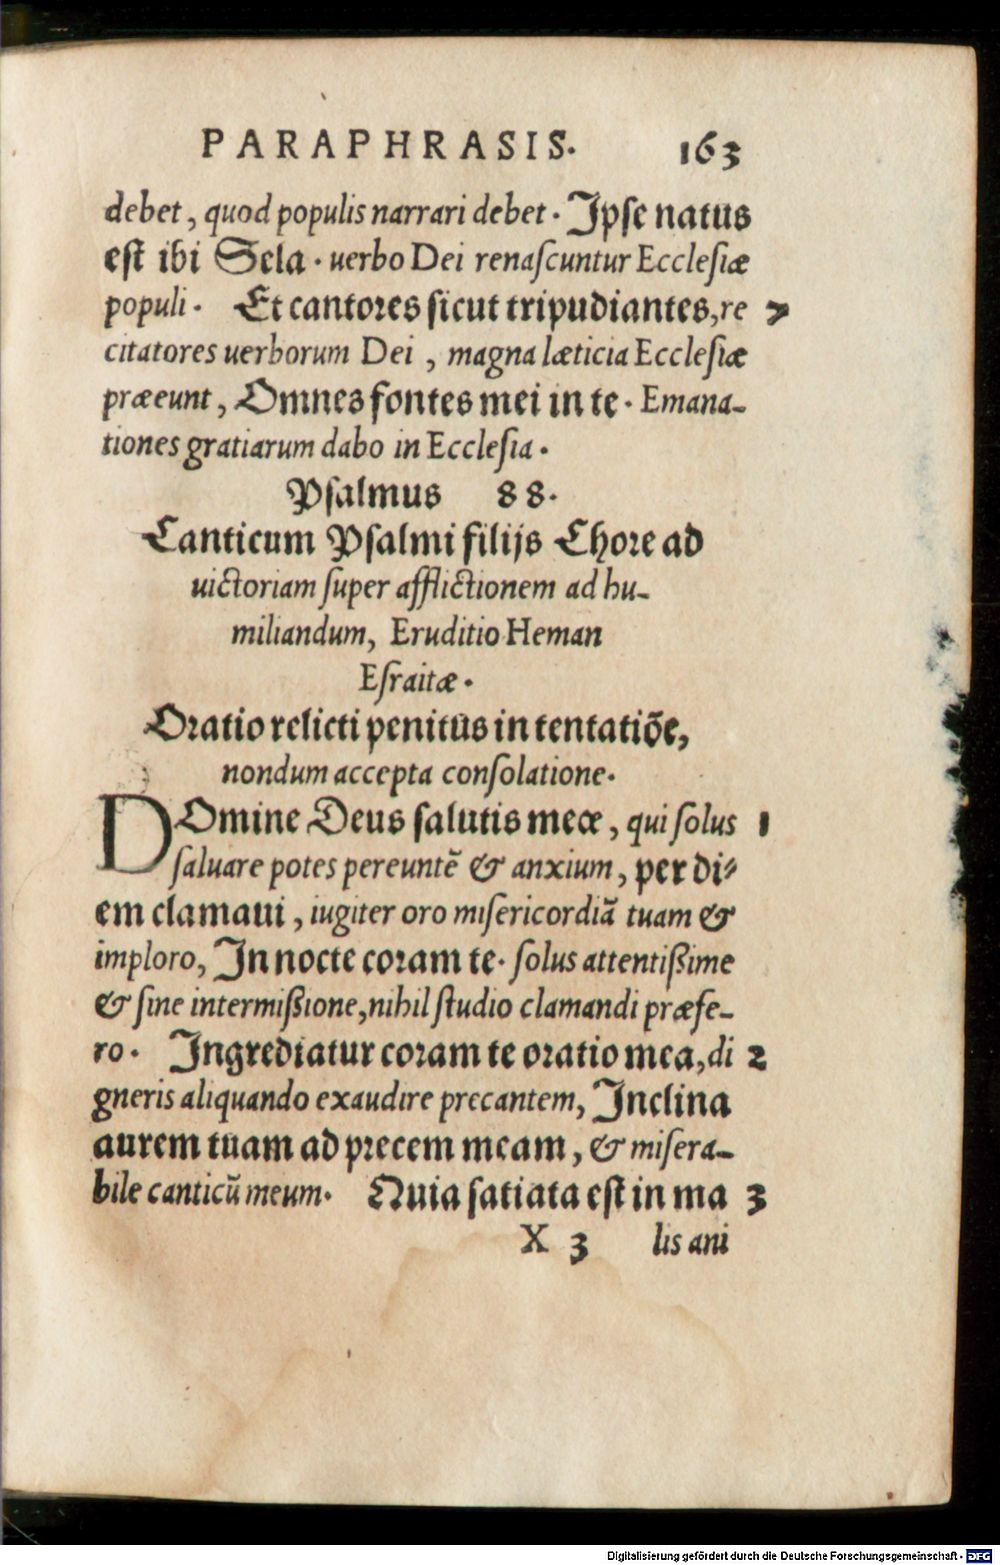 PARAPHRASIS. 163
debet, quod populis narrari debet. Ipſe natus
eſt ibi Sela. uerbo Dei renaſcuntur Eccleſiæ
populi. Et cantores ſicut tripudiantes, re 7
citatores uerborum Dei, magna læticia Eccleſiæ
præeunt, Omnes fontes mei in te. Emana-
tiones gratiarum dabo in Eccleſia.
Pſalmus 88.
Canticum Pſalmi filijs Chore ad
uictoriam ſuper afflictionem ad hu-
miliandum, Eruditio Heman
Eſraitæ.
Oratio relicti penitus in tentatiõe,
nondum accepta conſolatione.
DOmine Deus ſalutis meæ, qui ſolus 1
ſaluare potes pereuntẽ & anxium, per di-
em clamaui, iugiter oro miſericordiã tuam &
imploro, In nocte coram te. ſolus attentißime
& ſine intermißione, nihil ſtudio clamandi præfe-
ro. Ingrediatur coram te oratio mea, di 2
gneris aliquando exaudire precantem, Inclina
aurem tuam ad precem meam, & miſera-
bile canticũ meum. Quia ſatiata eſt in ma 3
X 3 lis ani
Digitalisierung gefördert durch die Deutsche Forschungsgemeinschaft - DFG